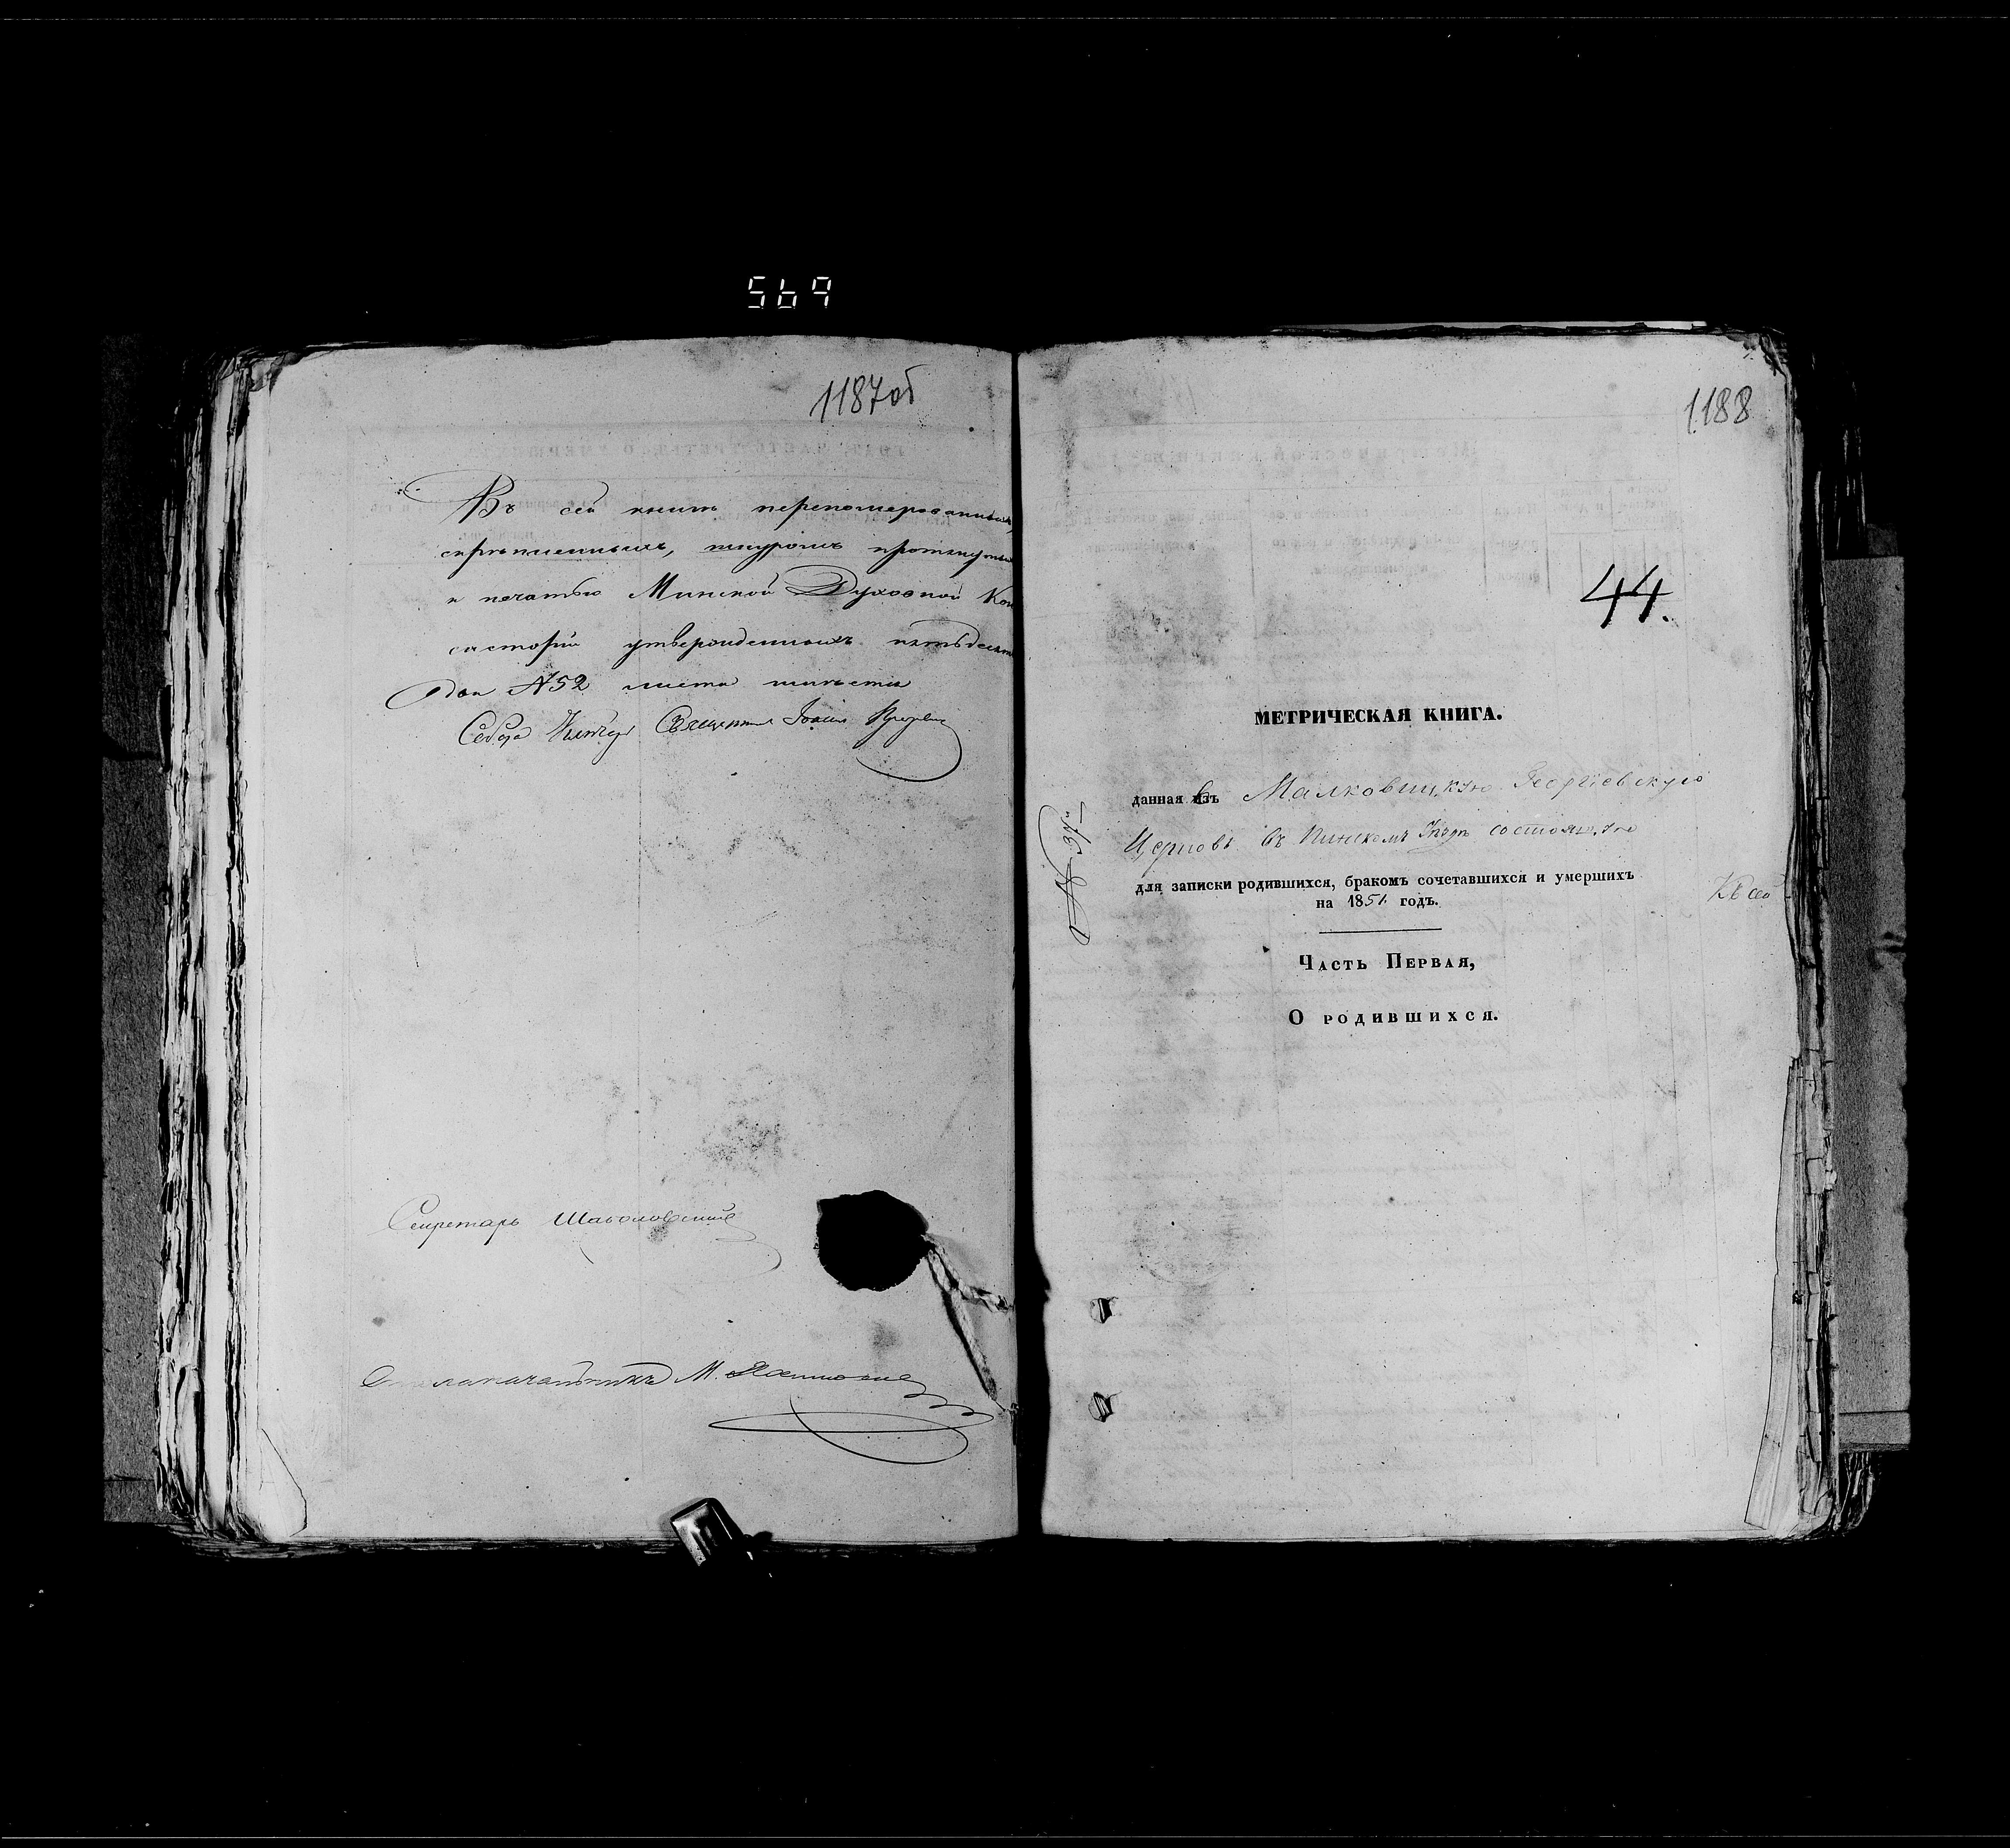 569
1187об
Въ сей книгѣ перенумерованныхъ,
скрѣпленныхъ, шнуромъ протянутыхъ
и печатью Минской Духовной Кон
систоріи утвержденныхъ пятьдесятъ
два №52 листа
Священникъ Іоаннъ
Секретарь
Столоначальникъ М.
1188
44.
МЕТРИЧЕСКАЯ КНИГА.
данная изъ въ Малковицкую Георгіевскую
Церковь въ Пинскомъ Уѣздѣ состоящую
для записки родившихся, бракомъ сочетавшихся и умершихъ
на 1851 годъ.
Часть Первая,
О родившихся.
Къ сей